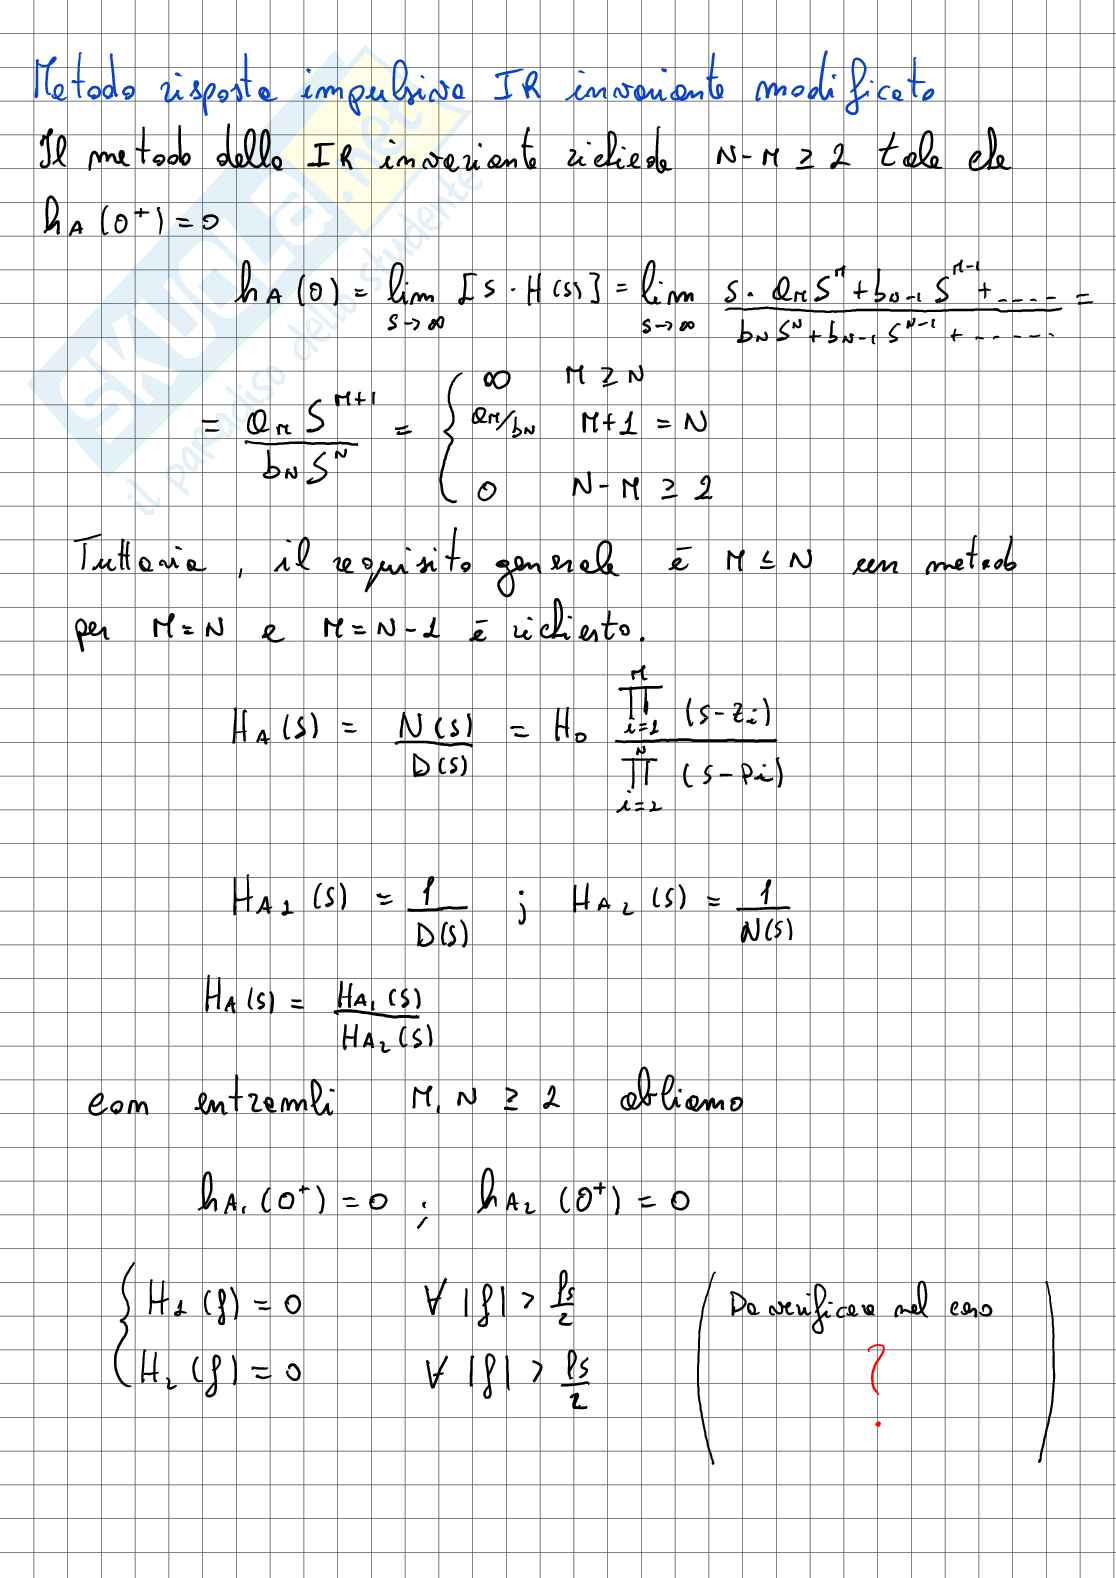 Metodo risposta impulsiva IR invariante modificato
Il metodo della IR invariante richiede N-M ≥ 2 tale che
hA(0⁺) = 0
hA(0) = lim s→∞ [s · H(s)] = lim s→∞ (s · aM S^M + b_{N-1} S^{M-1} + ....) / (bN S^N + bN-1 S^{N-1} + ......) =
= (aM S^{M+1}) / (bN S^N) = { ∞ M ≥ N
aM/bN M+1 = N
0 N-M ≥ 2
Tuttavia, il requisito generale è M ≤ N un metodo
per M=N e M=N-1 è richiesto.
HA(s) = N(s)/D(s) = H0 ∏_{i=1}^{M} (s-zi) / ∏_{i=1}^{N} (s-pi)
HA1(s) = 1/D(s) ; HA2(s) = 1/N(s)
HA(s) = HA1(s)/HA2(s)
con entrambi M, N ≥ 2 abbiamo
hA1(0⁺) = 0 ; hA2(0⁺) = 0
{ H1(f) = 0 ∀ |f| > fs/2
H2(f) = 0 ∀ |f| > fs/2
( Da verificare nel caso
? )
SKUOLA.net
il paradiso dello studente